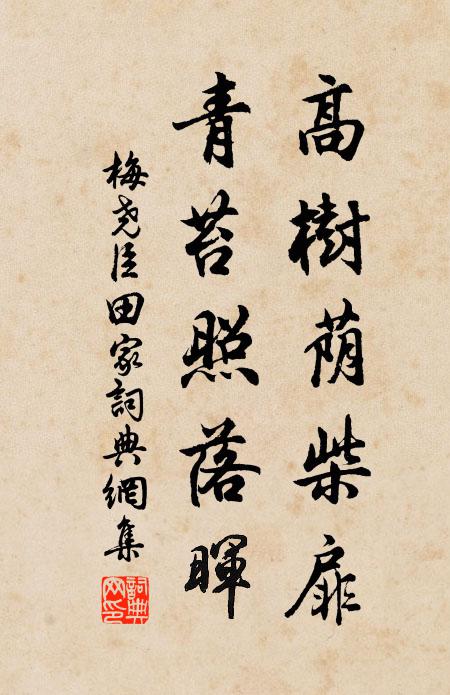 高樹蔭柴扉
青苔照落暉
梅尧臣田家詞典網集
詞典网印